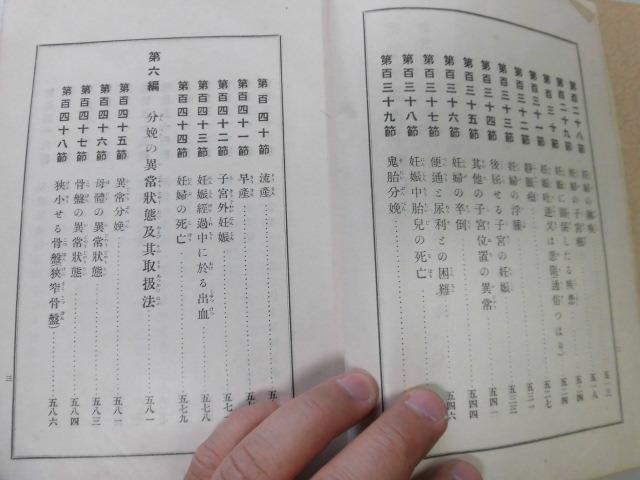 第百二十八節 妊婦の
第百二十九節 妊婦の子宮 五一八
第百三十節 妊娠に関係したる疾患 五二四
第百三十一節 妊娠吐逆又は悪阻（通俗つはり） 五二七
第百三十二節 静脈瘤 五三一
第百三十三節 妊婦の浮腫 五三三
第百三十四節 後屈せる子宮の妊娠 五四一
第百三十五節 其他の子宮位置の異常 五四四
第百三十六節 妊婦の卒倒 五四六
第百三十七節 便通と尿利との困難
第百三十八節 妊娠中胎兒の死亡
第百三十九節 鬼胎分娩
第百四十節 流産 五
第百四十一節 早産 五
第百四十二節 子宮外妊娠 五七
第百四十三節 妊娠經過中に於る出血 五七八
第百四十四節 妊婦の死亡 五七九
第六編 分娩の異常狀態及其取扱法 五八一
第百四十五節 異常分娩 五八一
第百四十六節 母體の異常狀態 五八三
第百四十七節 骨盤の異常狀態 五八四
第百四十八節 狹小せる骨盤（狹窄骨盤） 五八六
三